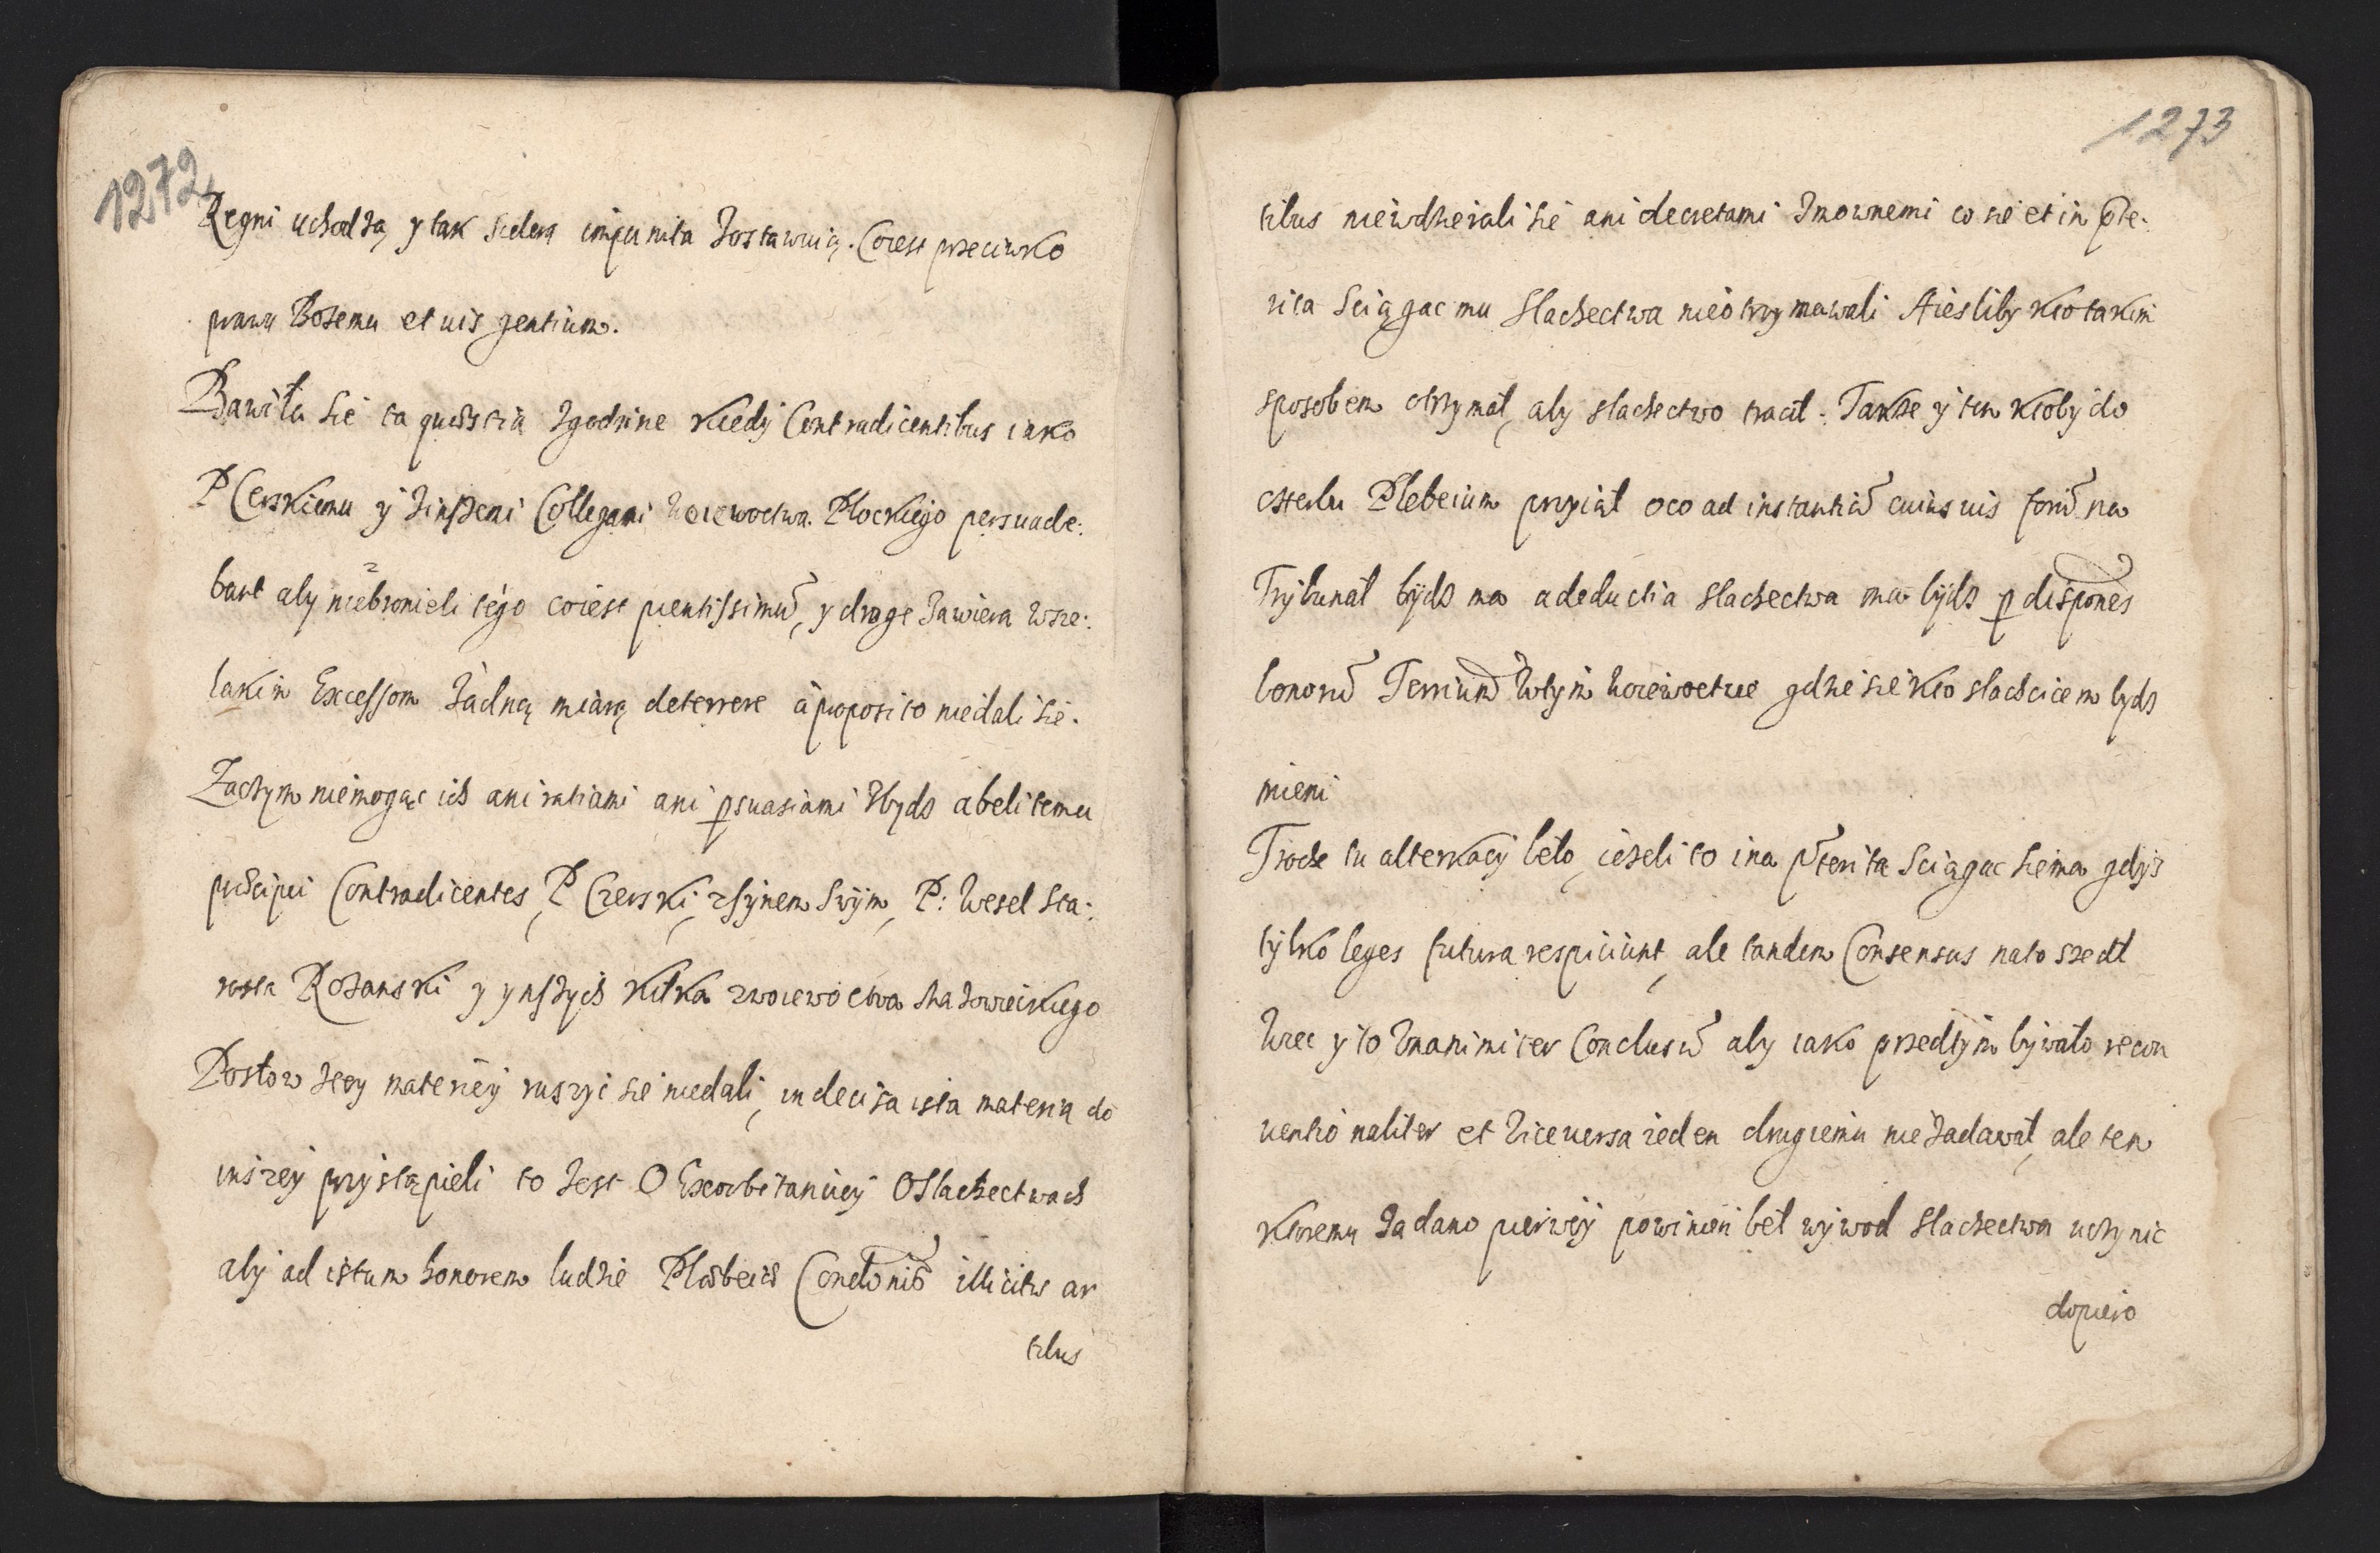 1272
Regni uchodzą, y tak scelera impunita zostawuią. Coiest przeciwko
prawu Bozemu et uis gentium.
Bawiła sie ta quæstia zgodzine kiedy Contradicentibus iako
P Cerskiemu y zinszemi Collegami woiewoctwa. Plockiego persuade:
bant aby niebronieli tego coiest pientissimū, y droge zawiera wsze:
lakim Excessom żadną miarą deterrere à proposito niedali sie.
Zaczym niemogąc ich ani ratiami ani psuasiami zbydz abeli temu
præcipui Contradicentes, P Czerski, zsynem swym, P: Wesel Sta:
rosta Rozanski y ynszych kilka zwoiewoctwa Mazowieckiego
Posłow tey materiey ruszyc sie niedali, indecisa ista materią do
inszey przystąpieli to Jest O Exorbitanciey OSlachectwach
aby ad istum honorem ludzie Plæbeiæ Conditionis illicitis ar
tibus
1273
tibus niewdzierali sie ani decretami zmownemi co sie et in præte:
rita sciągac mu Slachectwa nieotrzymawali Aiesliby kto takim
sposobem otrzymał, aby slachectwo tracił. Takze y ten ktoby do
Herbu Plebeium przyiął oco ad instantiā cuiusuis forū na
Trybunał bydz ma a deductia slachectwa ma bydz p dispones
bonorū Terriū wtym woiewoctwie gdzie sie kto slachcicem bydz
mieni
Troche tu alterkacy beło, iezeli to ina præterita sciągac sie ma gdysz
tylko leges futura respiciunt, ale tandem Consensus nato szedł
Wiec y to Vnanimiter Conclusū aby iako przedtym bywało recon
uentionaliter et Viceuersa ieden drugiemu niezadawał, ale ten
ktoremu zadano pierwey powinien beł wywod slachectwa uczynic
dopiero